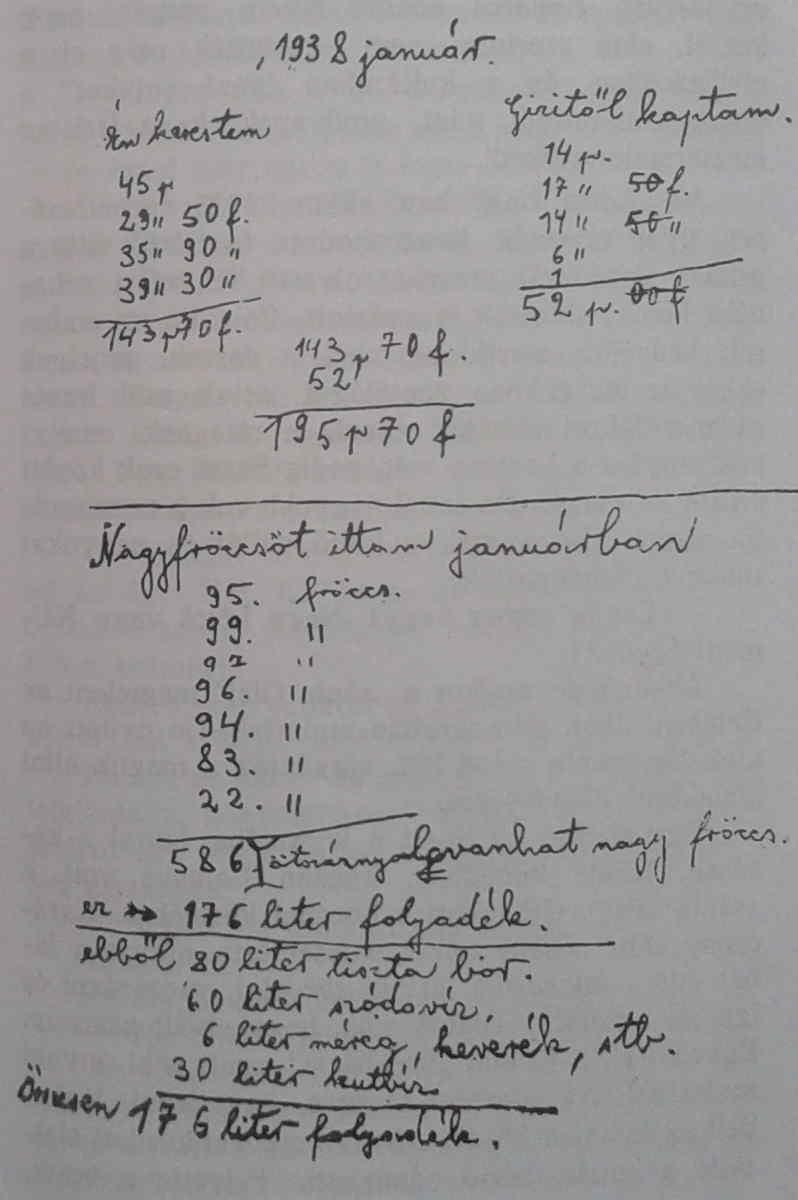 , 1938 január.
Én kerestem
45 p
29 " 50 f.
35 " 90 "
39 " 30 "
143 p 70 f.
Giritől kaptam.
14 p.
17 " 50 f.
14 " 50 "
6 "
1
52 p. 00 f
143 p 70 f.
52
195 p 70 f
Nagyfröccsöt ittam januárban
95. fröccs.
99. "
97 "
96. "
94. "
83. "
22. "
586 nagy fröccs.
ez 176 liter folyadék.
ebből 80 liter tiszta bor.
60 liter szódavíz,
6 liter méreg, keverék, stb.
30 liter kutvíz
Összesen 176 liter folyadék.